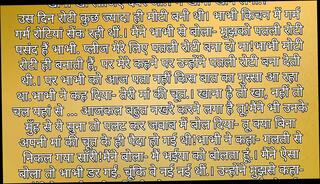 उस दिन रोटी कुछ ज्यादा ही मोटी बनी थी। भाभी किचन में गर्म
गर्म रोटियां सेंक रही थीं। मैंने भाभी से बोला- मुझको पतली रोटी
पसंद है भाभी, प्लीज मेरे लिए पतली रोटी बना दो ना।भाभी मोटी
रोटी ही बनाती हैं, पर मेरे कहने पर उन्होंने पतली रोटी बना देती
थी।. पर भाभी को आज पता नहीं किस बात का गुस्सा आ रहा
था.भाभी ने कह दिया- तेरी मां की चूत.। खाना है तो खा, नहीं तो
चल यहां से ... आजकल बहुत नखरे करने लगा है तू!मैंने भी उनके
मुँह से ये सुना तो पलट कर जवाब में बोल दिया- तू क्या बिना
अपनी मां की चूत के ही पैदा हो गई थी!भाभी ने कहा- गलती से
निकल गया सॉरी!मैंने बोला- मैं भईया को बोलता हूँ.। मैंने ऐसा
बोला तो भाभी डर गईं. चूंकि वे नई नई थीं.। उन्होंने मुझसे कहा-